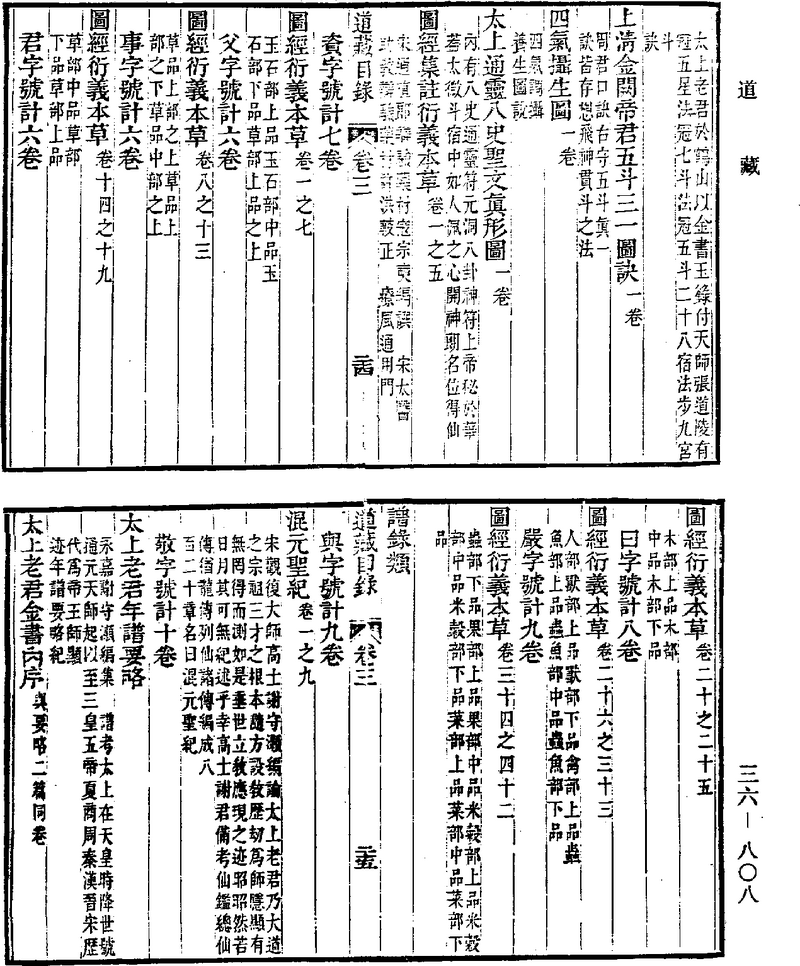 道藏
太上老君於鶴山以金書玉籙付天師張道陵有
冠五星法冠七斗法冠五斗二十八宿法步九宮
斗
訣
上清金闕帝君五斗三一圖訣一卷
周君口訣右字五斗眞一
訣皆存想飛神貫斗之法
四氣攝生圖一卷
四氣調攝
養生圖說
太上通靈八史聖文眞形圖一卷
內有八史通靈符元洞八卦神符上帝秘於華
蓋太微斗宿中如人佩之心開神聰名位得仙
圖經集註衍義本草卷一之五
宋通直郎辯驗藥材寇宗奭編譔 宋太醫
療風通用門
道藏目錄 卷三 二十四
資字號計七卷
圖經衍義本草卷一之七
玉石部上品玉石部中品玉
石部下品草部上品之上
父字號計六卷
圖經衍義本草卷八之十三
草品上部之上草品上
部之下草品中部之上
事字號計六卷
圖經衍義本草卷十四之十九
草部中品草部
下品草部上品
君字號計六卷
圖經衍義本草卷二十之二十五
木部上品木部
中品木部下品
曰字號計八卷
圖經衍義本草卷二十六之三十三
人部獸部上品獸部下品禽部上品蟲
魚部上品蟲魚部中品蟲魚部下品
嚴字號計九卷
圖經衍義本草卷三十四之四十二
蟲部下品果部上品果部中品米穀部上品米穀
部中品米穀部下品菜部上品菜部中品菜部下
品
譜錄類
道藏目錄 卷三 二十五
與字號計九卷
混元聖紀卷一之九
宋觀復大師高士謝守灝編論太上老君乃大道
之宗祖三才之根本隨方設教歷劫爲師隱顯有
無罔得而測如是垂世立教應現之迹昭昭然若
日月其可無紀述乎幸高士謝君備考仙鑑總仙
傳猶龍傳列仙諸傳編成八
百二十章名曰混元聖紀
敬字號計十卷
太上老君年譜要略
永嘉謝守灝編集 譜考太上在天皇時降世號
通元天師起以至三皇五帝夏商周秦漢晉宋歷
代爲帝王師顯
迹年譜要略紀
太上老君金書內序與要略二篇同卷
三六—八〇八